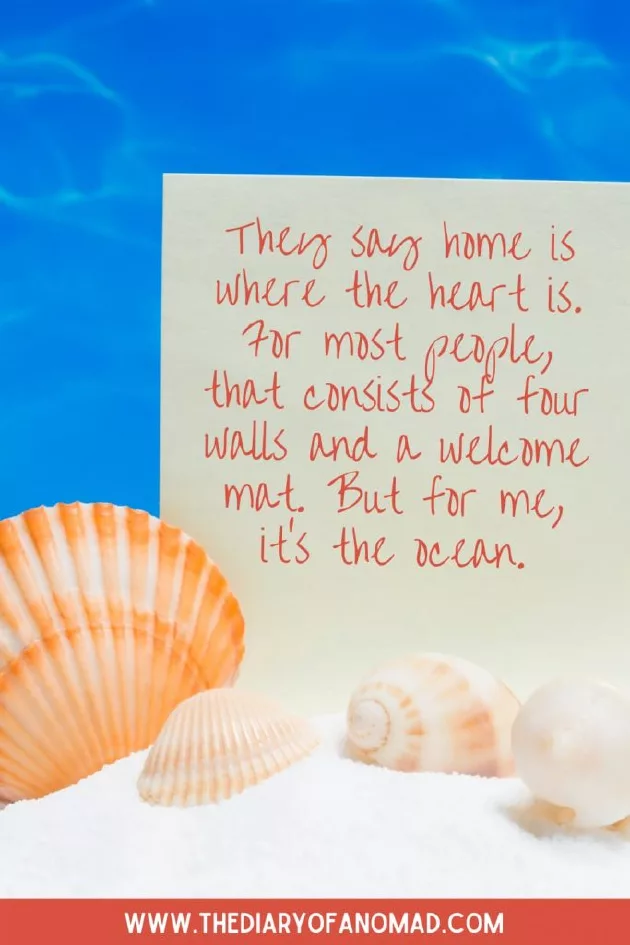 They say home is
where the heart is.
For most people,
that consists of four
walls and a welcome
mat. But for me,
it's the ocean.
WWW.THEDIARYOFANOMAD.COM